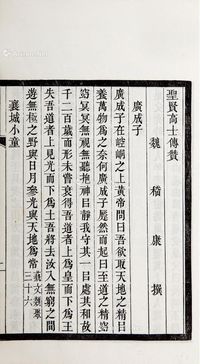 聖賢高士傳贊
魏嵇康撰
廣成子
廣成子在崆峒之上黃帝問曰吾欲取天地之精㠯
養萬物爲之奈何廣成子蹶然而起曰至道之精窈
窈冥冥無視無聽抱神㠯靜我守其一㠯處其和故
千二百歲而形未嘗衰得吾道者上爲皇而下爲王
失吾道者上見光而下爲土吾將去汝入無窮之門
遊無極之野與日月參光與天地爲常藝文類聚三十六
襄城小童